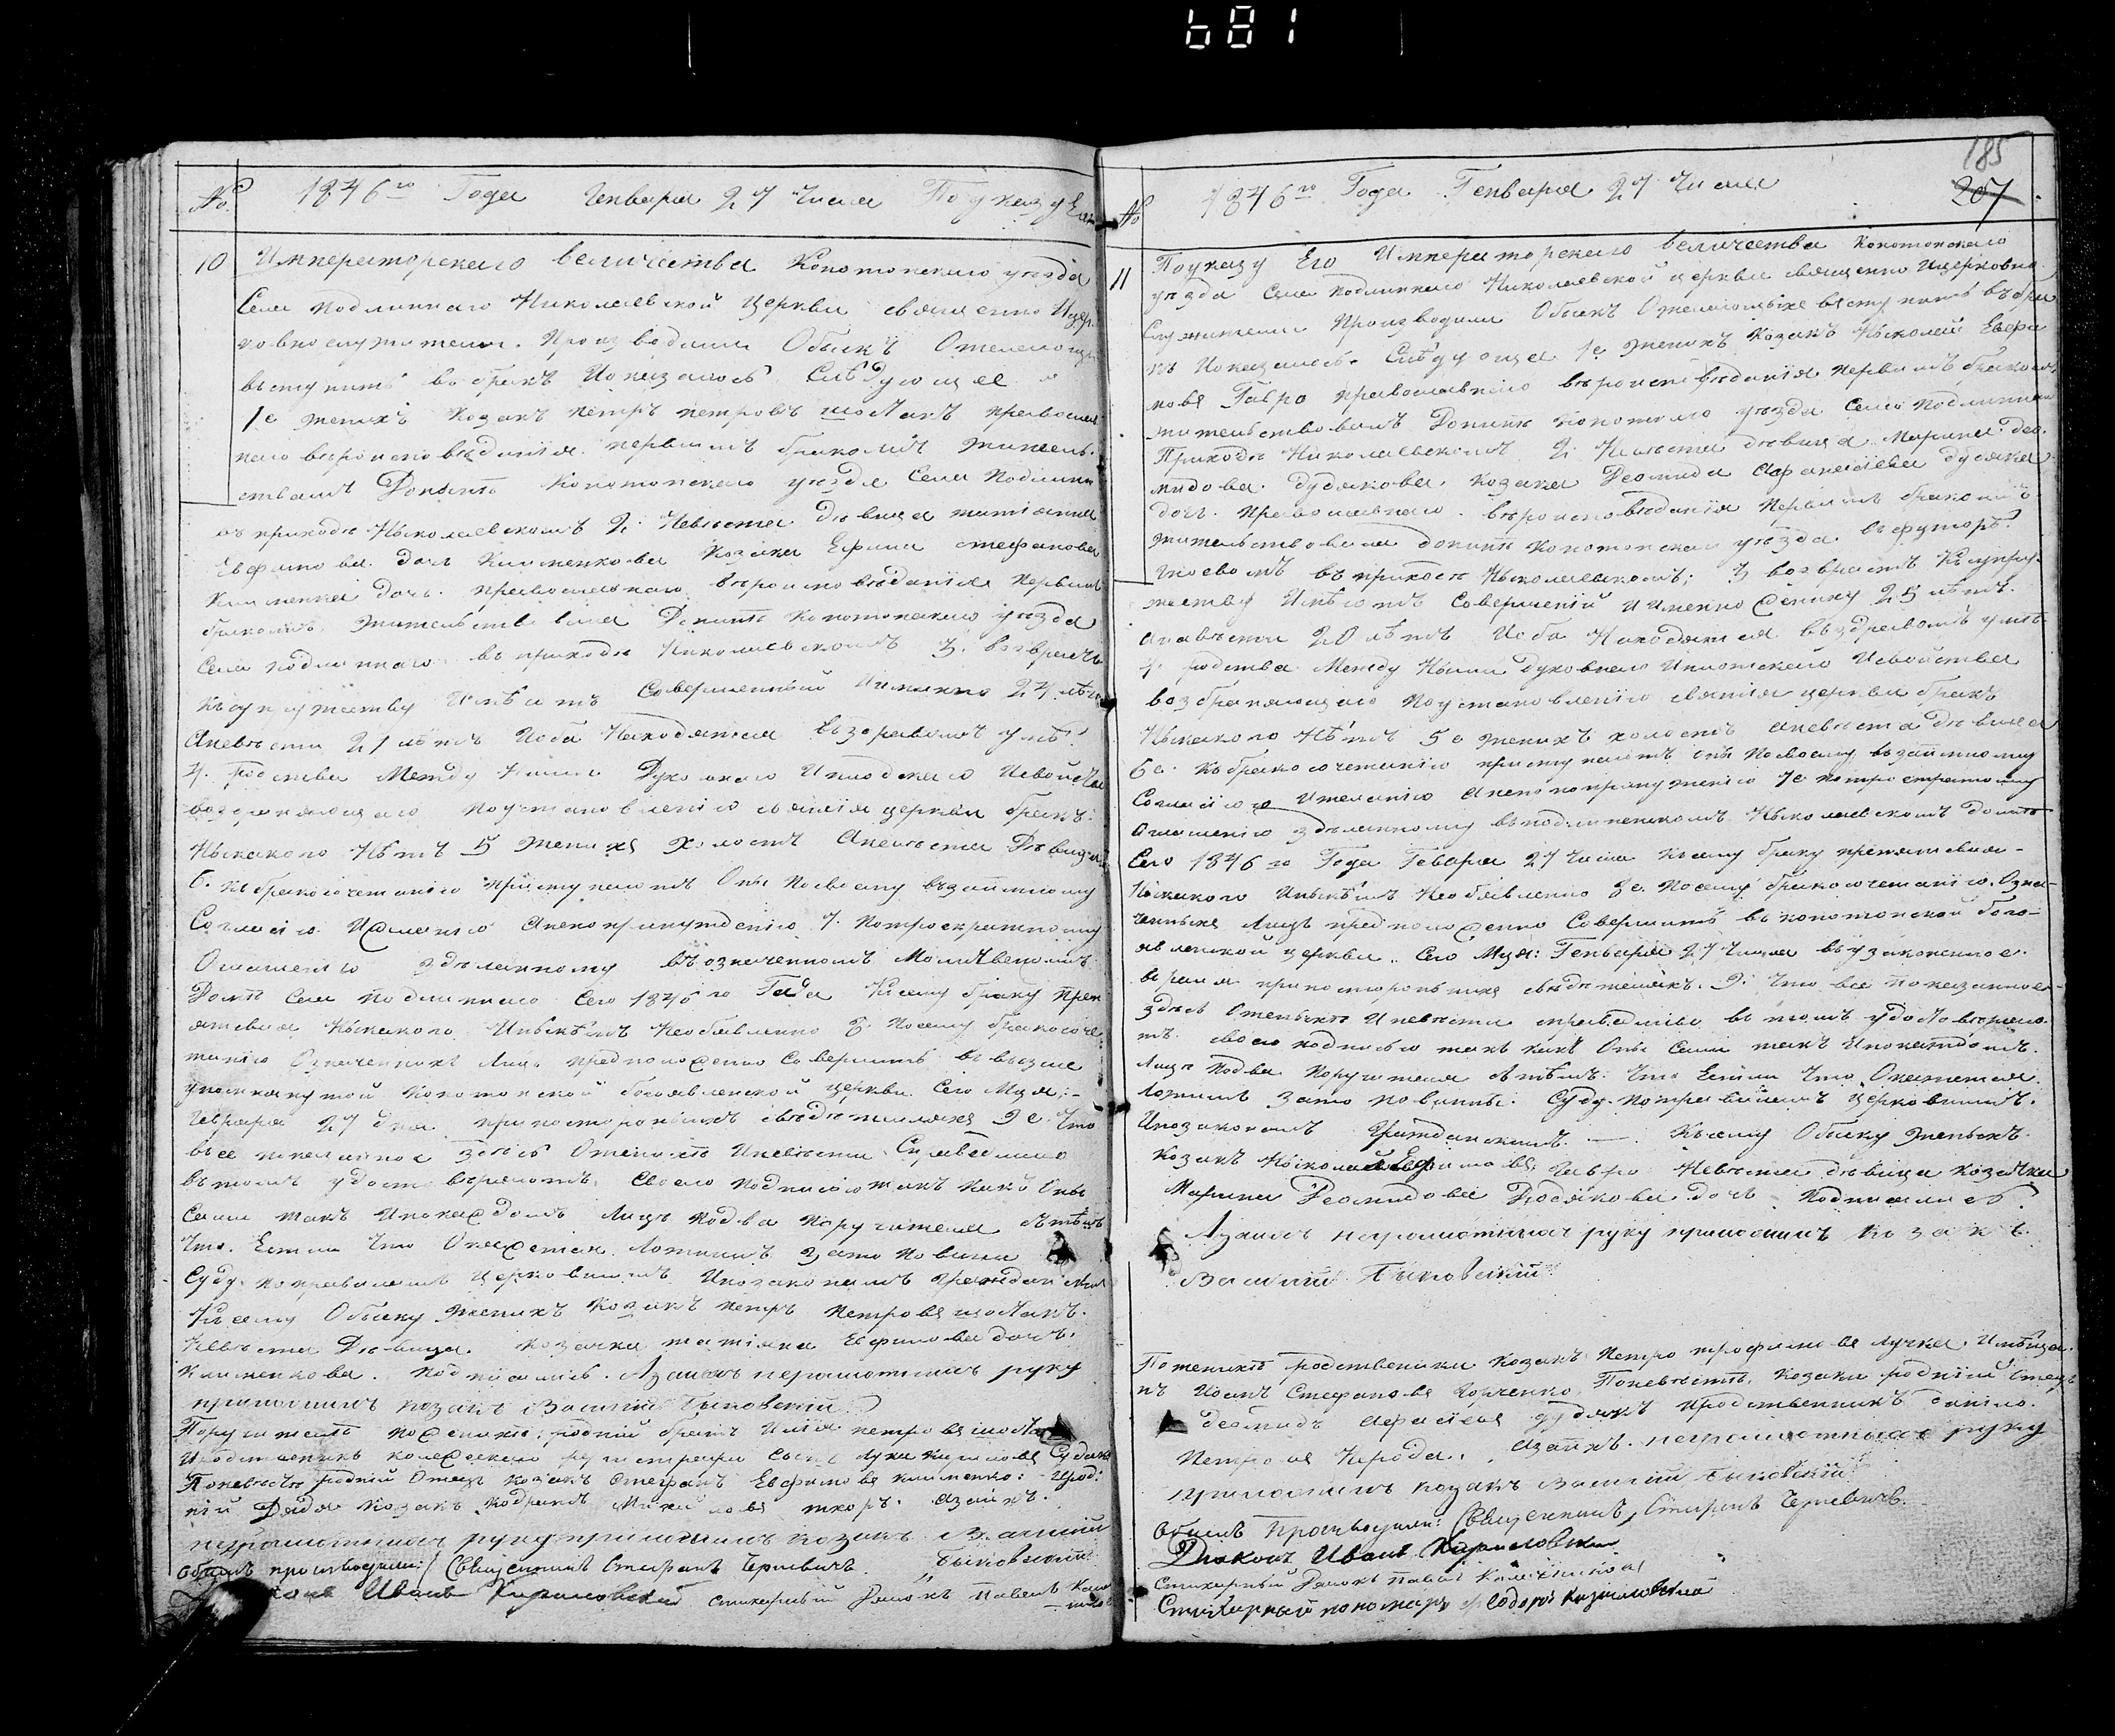 681
№ 1846го Года Генваря 27 Числа По указу Его
10 Императорскаго величества Конотопскаго уезда
Села подлипнаго Николаевской Церкви священно Ицер-
ковнослужители. Производили Обыскъ Ожелающихъ
вступить вобракъ Иоказалось Слѣдующее
1е женихъ Козакъ петръ петровъ шостакъ православ
наго вероисповѣданія первымъ бракомъ жительс-
ствомъ Донынѣ Конотопскаго уезда Села подлипн
въ приходѣ Николаевскомъ 2. Невѣста Девица татіана
Евфимова дочь Клименкова Козака Ефима стефанова
Клименка дочь. православнаго вѣроисповѣданія первымъ
бракомъ. жительствовала Донынѣ Конотопскаго уезда
Села подлипнаго въ приходѣ Николаевскомъ 3. возрастъ
Ксупружеству Имѣютъ Совершенный Именно 24 лѣтъ
Аневѣста 21 лѣтъ Иоба Находятся въздравомъ умѣ.
4. родства Между Ними Духовнаго Иплодскаго Исвойства
возбраняющаго поустановленію святія церкви бракъ
Ныкакого Нѣтъ 5 жених Холостъ Аневѣста Девица
6. Кбракосочетанію приступаютъ Оны посвоему взаимному
Согласію Ижеланію Анепопринужденію 7. Потроекратному
Оглашенію зделанному въозначенномъ Молитвеномъ
Доме Села подлипнаго Сего 1846го Года Ксему браку Преп
ятсвія Ныкакого Ныкѣмъ Необявленно 8. Посему бракосоче
танію Означенныхъ Лицъ предположенно Совершить въвыше
упомянутой Конотопской богоявленской церкви Сего Мця:-
Генваря 27 дня припостороныхъ свѣдителяхъ 9е. Что
все показанное Здѣсь Оженихѣ Иневѣсте Справедливо
втомъ удостовѣряютъ Своею подписютакъ какъ Оны
Сами такъ Ипокаждомъ Лице подва поручителя Стѣмъ
Что. Естли Что Окажется Ложнимъ Зато повины
Суду поправиламъ Церковнимъ Ипозаконамъ Граждански
Ксему Обыску женихъ Козакъ петръ Петровъ шостакъ.
Невѣста Девица. козачка татіяна Евфимова дочь.
Клименкова. подписались. Азанихъ неграмотнихъ руку
приложилъ козакъ Василій Быковскій
Поручители поженихѣ: родній братъ Илія петровъ шоста
Иродственикъ колежскаго регистратра сынъ Лука
Поневѣстѣ родній Отецъ козакъ Стефанъ Евфимовъ клименко: Ирод:
ній Дядя козакъ Кодратъ Михайловъ Азанихъ.
неграмотнихъ руку приложилъ козакъ Василий
Быковский
Обыскъ производили: Священникъ Стефанъ Черневичъ
Иванъ Кириловский стихарный Дячокъ Павелъ
185
207
№ 1846го Года Генваря 27 Числа
11 Поуказу Его Императорскаго величества конотопскаго
уезда Села подлипнаго Николаевской церкви священно Ицерковно
Служители Производили Обыскъ Ожелающихъ вступить въбра
къ Иоказалось Слѣдующее 1е женихъ Козакъ Ныколай Евфи
мовъ Гавро православнаго вѣроисповѣданія первымъ бракомъ
жительствовалъ Донынѣ Конотопскаго уезда Села подлипна
Приходѣ Николаевскомъ 2. Невѣста дѣвица Марина Део-
мидова дудякова козака Деомида Афанасіева дудяка
дочь. православнаго вѣроисповѣданія первымъ бракомъ
жительствовала донынѣ Конотопскаго уезда въхуторѣ
въприходе Ныколаевскомъ; 3 возрастъ Ксупру-
жеству Имѣютъ Совершеній Именно жениху 25 лѣтъ
Аневѣсти 20 лѣтъ Иоба Находятся въздравомъ умѣ
4. родства Между Ными духовнаго Иплотскаго Исвойства
возбраняющаго поустановленію святія церкви бракъ
Ныкакого Нѣтъ 5е женихъ холостъ аневѣста дѣвица
6е. Къбракосочетанію приступаютъ они посвоему взаимному
Согласію Ижеланію Анепопринужденію 7е потроекратному
Оглашенію зделанному въподлипенскомъ Ныколаевскомъ доме
Сего 1846го Года Генваря 27 Числа Ксему браку препятсвия-
Ныкакого Иныкѣмъ Необявленно 8е. Посему бракосочетанію. Озна-
ченныхъ Лицъ предположенно Совершить въ конотопской бого-
явленской церкви. Сего Мця: Генваря 27 Числа въузаконенное
время припостороныхъ свѣдѣтеляхъ. 9. Что все показанное-
здѣсь Оженыхѣ Иневѣсте справедливо втомъ удостовѣряю
тъ своею подписью такъ какъ Оны Сами такъ Ипокаждомъ.
Лице подва поручителя Стѣмъ: что Естли что Окажется
Ложнимъ Зато повинны. Суду поправиламъ церковнимъ.
Ипозаконамъ Гражданскимъ. — Ксему Обыску женыхъ
козакъ Ныколай Евфимовъ Гавро Невѣста дѣвица козачка
Марина Деомидова Дюдякова дочь подписались
Азаних неграмотнихъ руку приложилъ козакъ.
Василий Быковский
Поженихѣ родственики козакъ петро трофимовъ лучка. Имѣща
нъ Иоанъ Стефановъ Юрченко Поневѣстѣ. козаки родній Отецъ
деомидъ Афасіевъ дудякъ Иродственникъ данило.
Петровъ Азанихъ. неграмотныхъ руку
приложилъ козакъ Василий Быковский
Обыскъ Производили: Священникъ Стефанъ Черневичъ.
Диаконъ Иванъ Кириловский
Стихарный Дячокъ Павелъ
Стихарный пономарь Феодоръ Кириловский